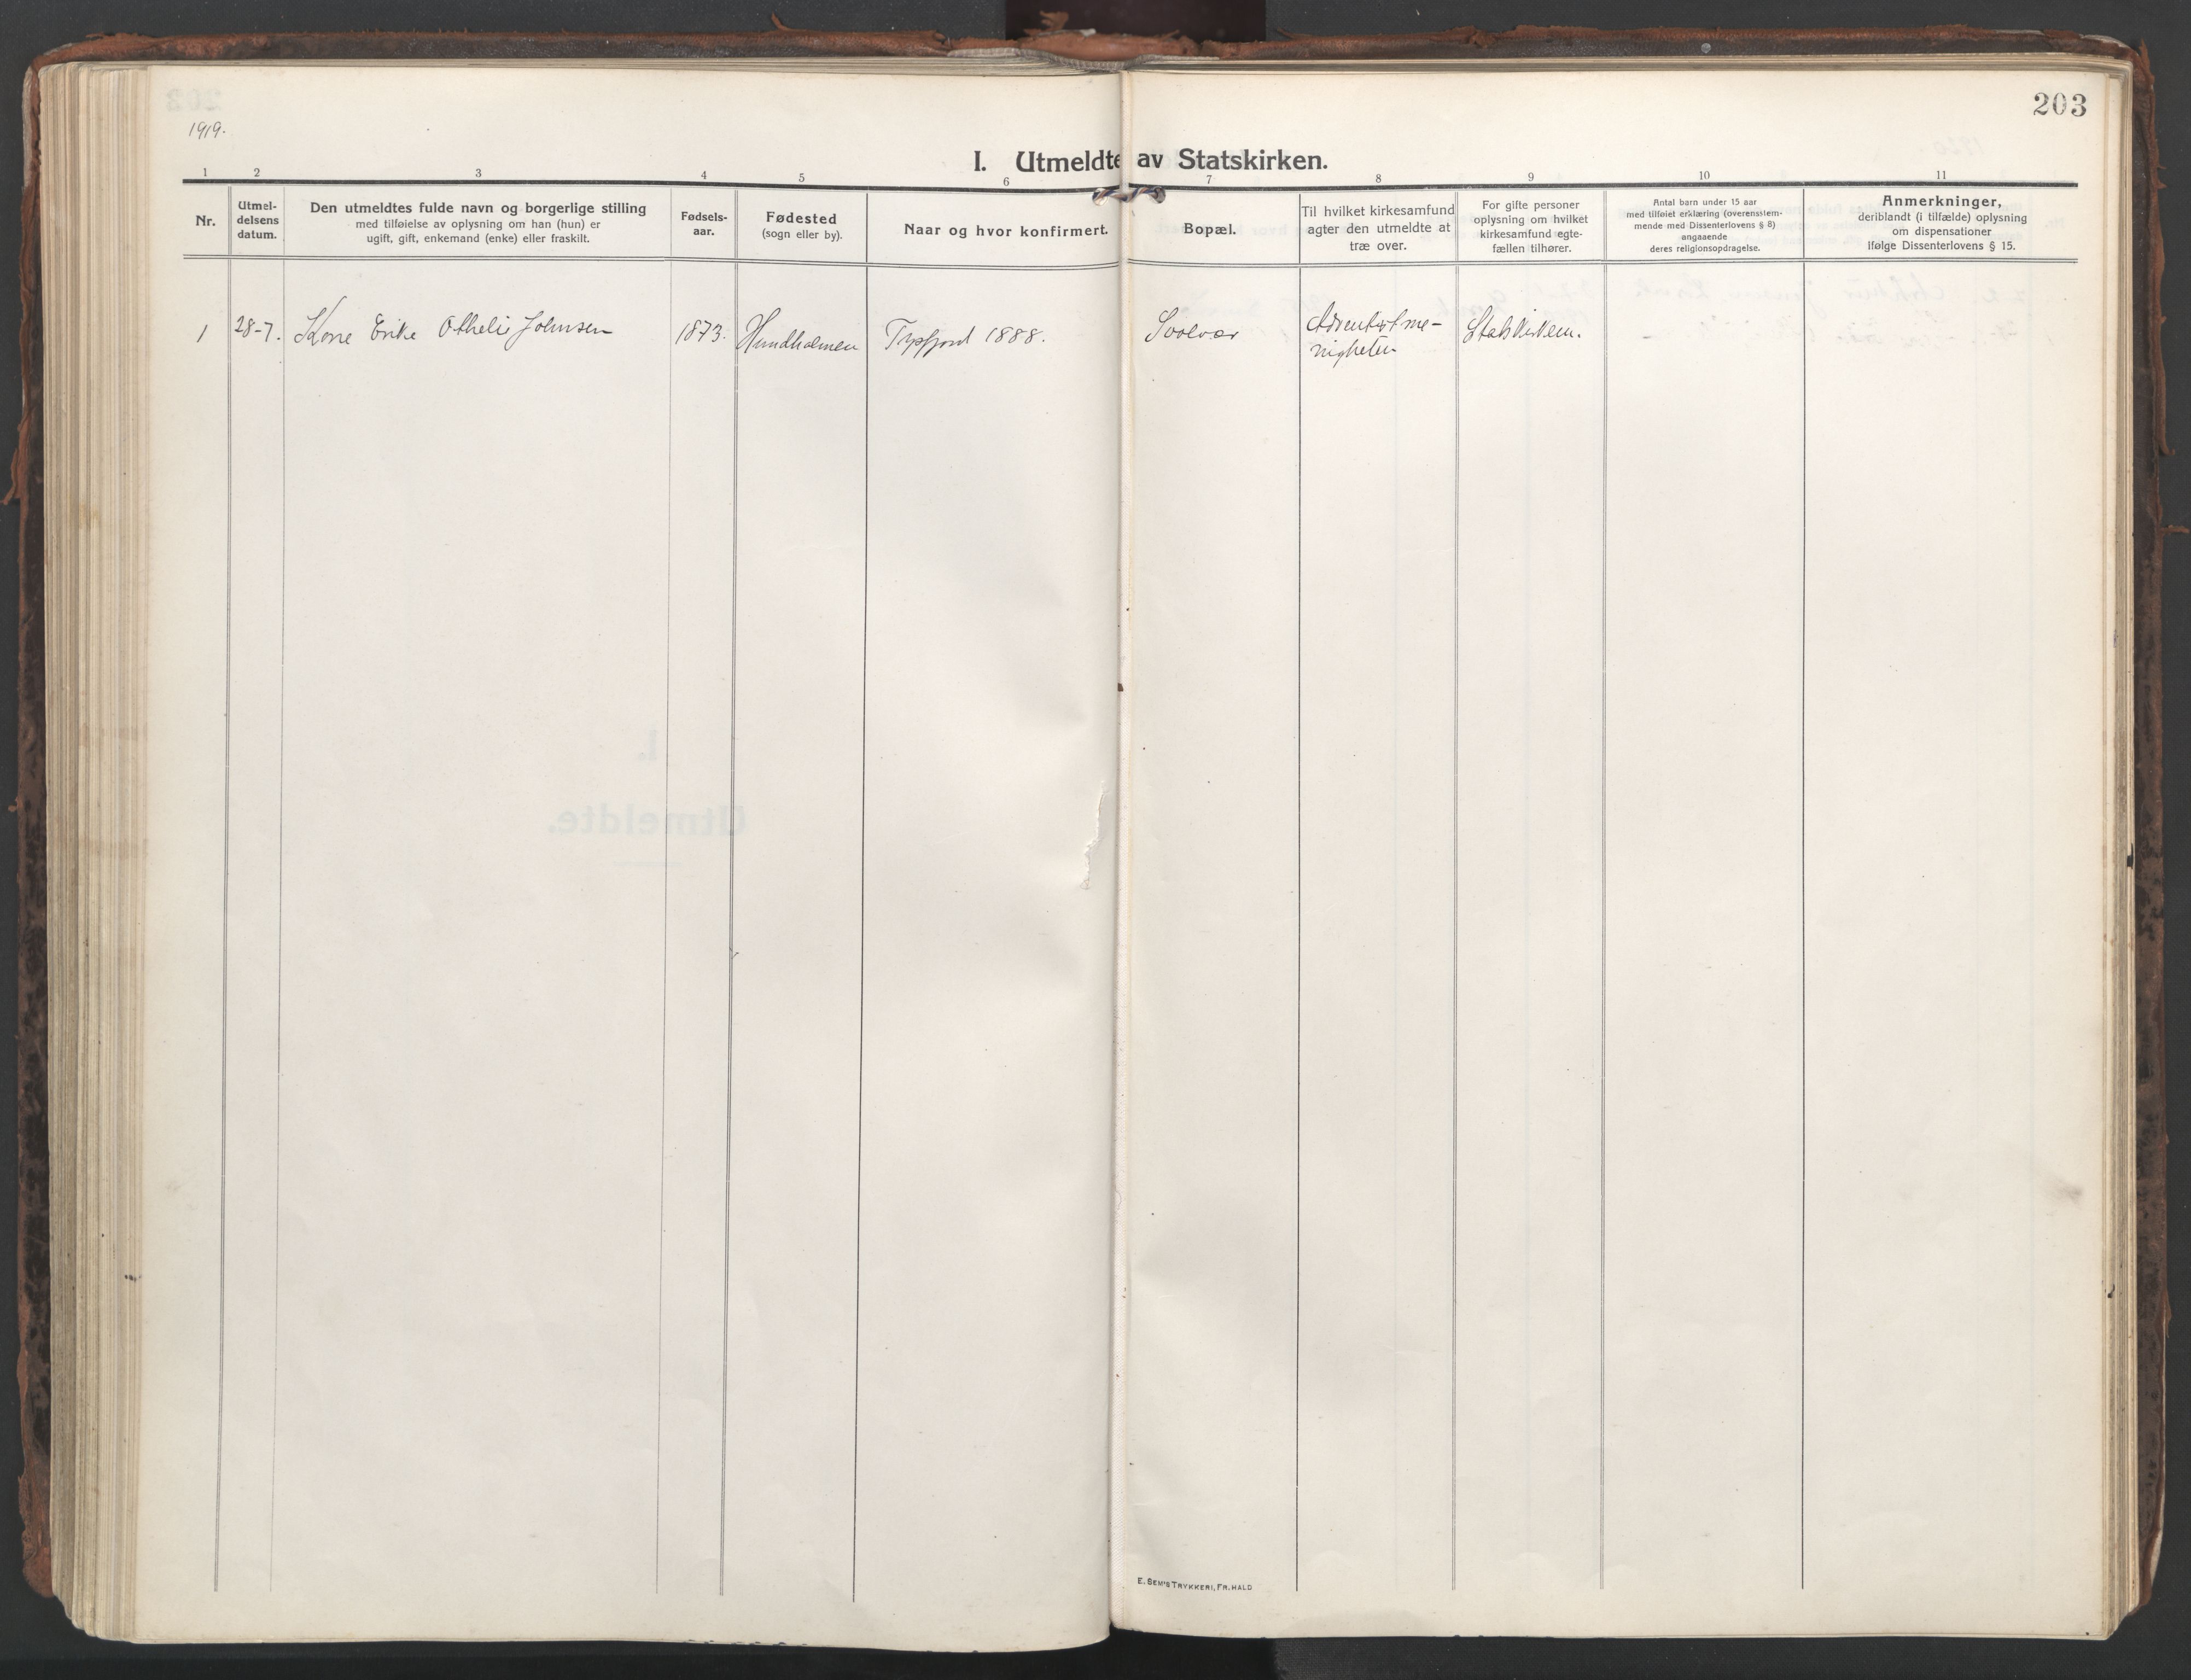 203
1919.
I. Utmeldte av Statskirken.
1 2 3 4 5 6 7 8 9 10 11
Nr.
Utmel-
delsens
datum.
Den utmeldtes fulde navn og borgerlige stilling
med tilføielse av oplysning om han (hun) er
ugift, gift, enkemand (enke) eller fraskilt.
Fødsels-
aar.
Fødested
(sogn eller by).
Naar og hvor konfirmert.
Bopæl.
Til hvilket kirkesamfund
agter den utmeldte at
træ over.
For gifte personer
oplysning om hvilket
kirkesamfund egte-
fællen tilhører.
Antal barn under 15 aar
med tilføiet erklæring (overensstem-
mende med Dissenterlovens § 8)
angaaende
deres religionsopdragelse.
Anmerkninger,
deriblandt (i tilfælde) oplysning
om dispensationer
ifølge Dissenterlovens § 15.
1
28-7.
Kone Erike Othelie Johnsen
1873.
Hundholmen
Tysfjord 1888.
Svolvær
Adventistme-
nigheten
Statskirken.
E. SEM'S TRYKKERI, FR. HALD